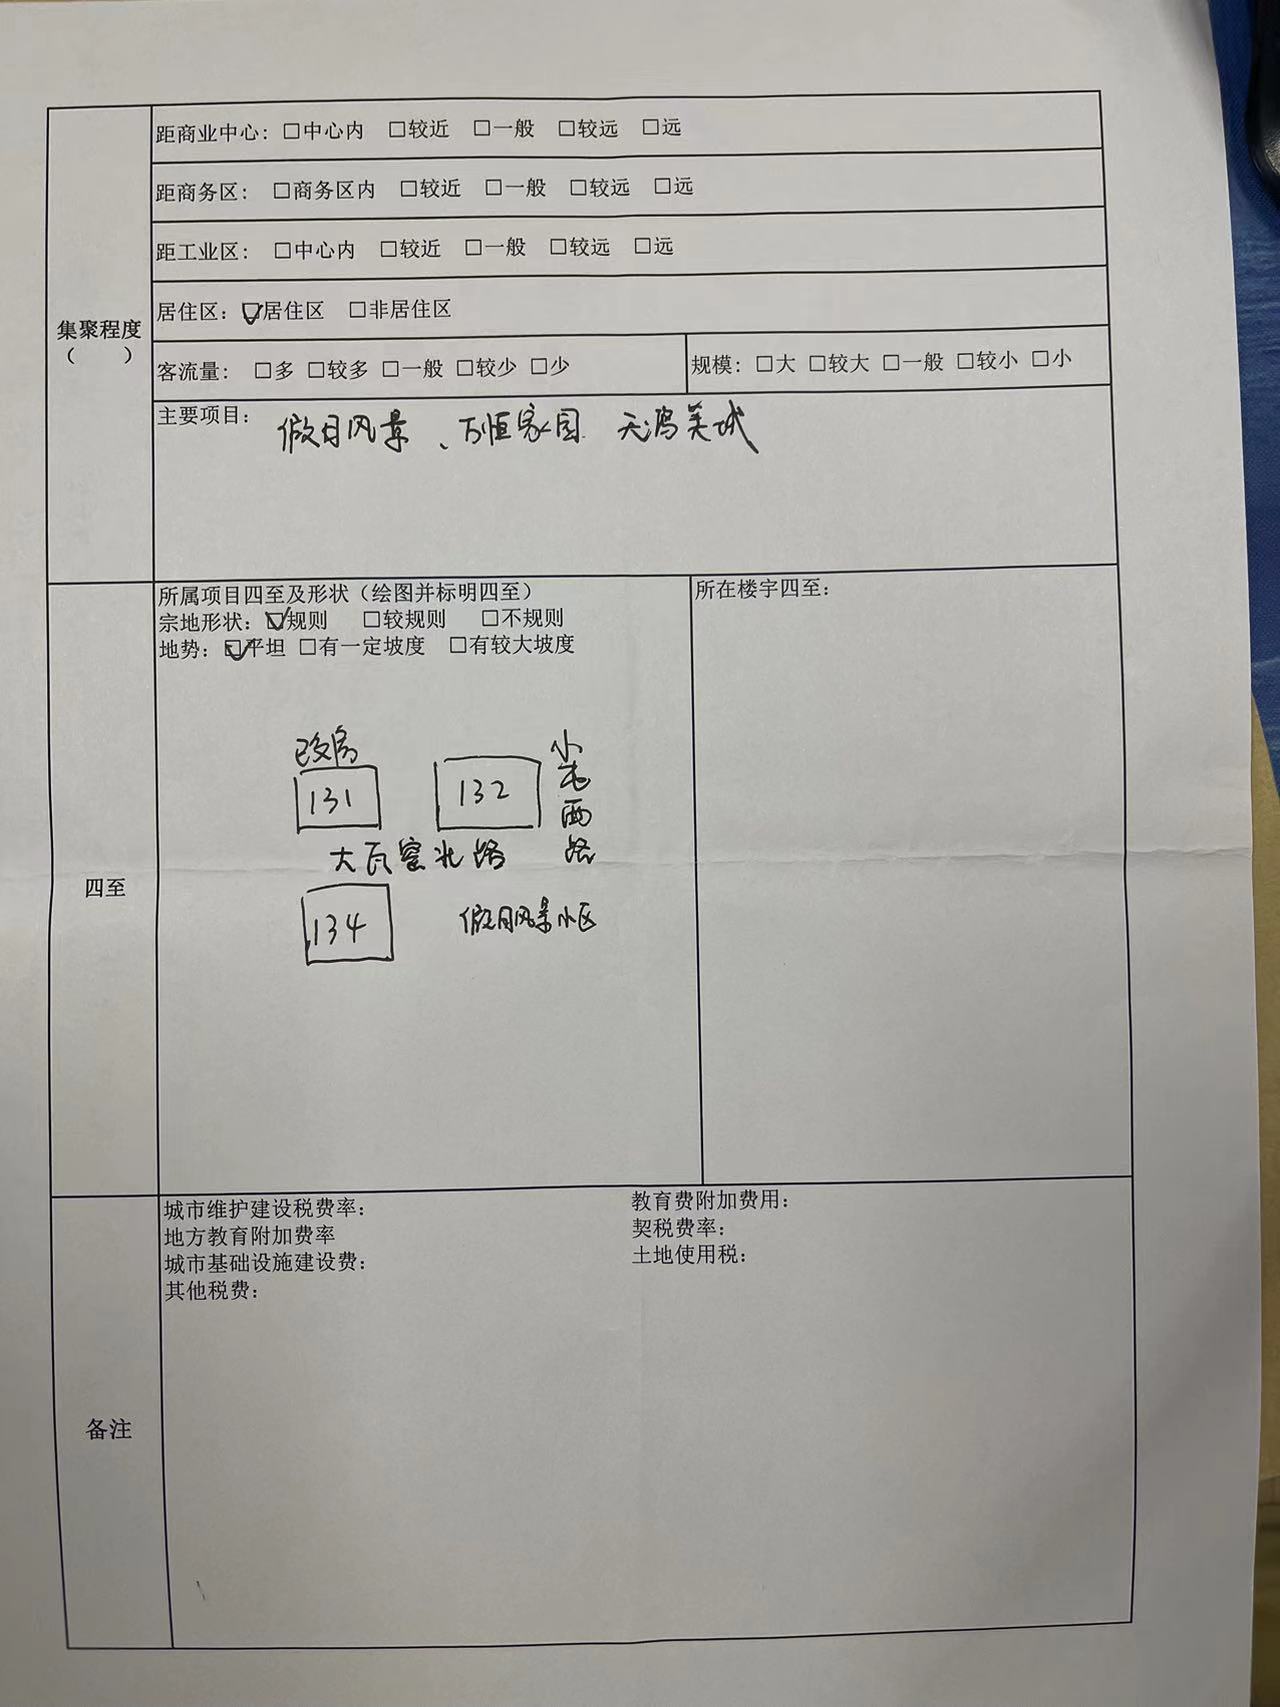 距商业中心：□中心内 □较近 □一般 □较远 □远
距商务区： □商务区内 □较近 □一般 □较远 □远
距工业区： □中心内 □较近 □一般 □较远 □远
居住区：☑居住区 □非居住区
集聚程度
（ ）
客流量： □多 □较多 □一般 □较少 □少
规模：□大 □较大 □一般 □较小 □小
主要项目：
假日风景、万恒家园 天鸿美域
四至
所属项目四至及形状（绘图并标明四至）
宗地形状：☑规则 □较规则 □不规则
地势：☑平坦 □有一定坡度 □有较大坡度
131
132
小屯西路
大瓦窑北路
134
假日风景小区
所在楼宇四至：
备注
城市维护建设税费率：
教育费附加费用：
地方教育附加费率
契税费率：
城市基础设施建设费：
土地使用税：
其他税费：